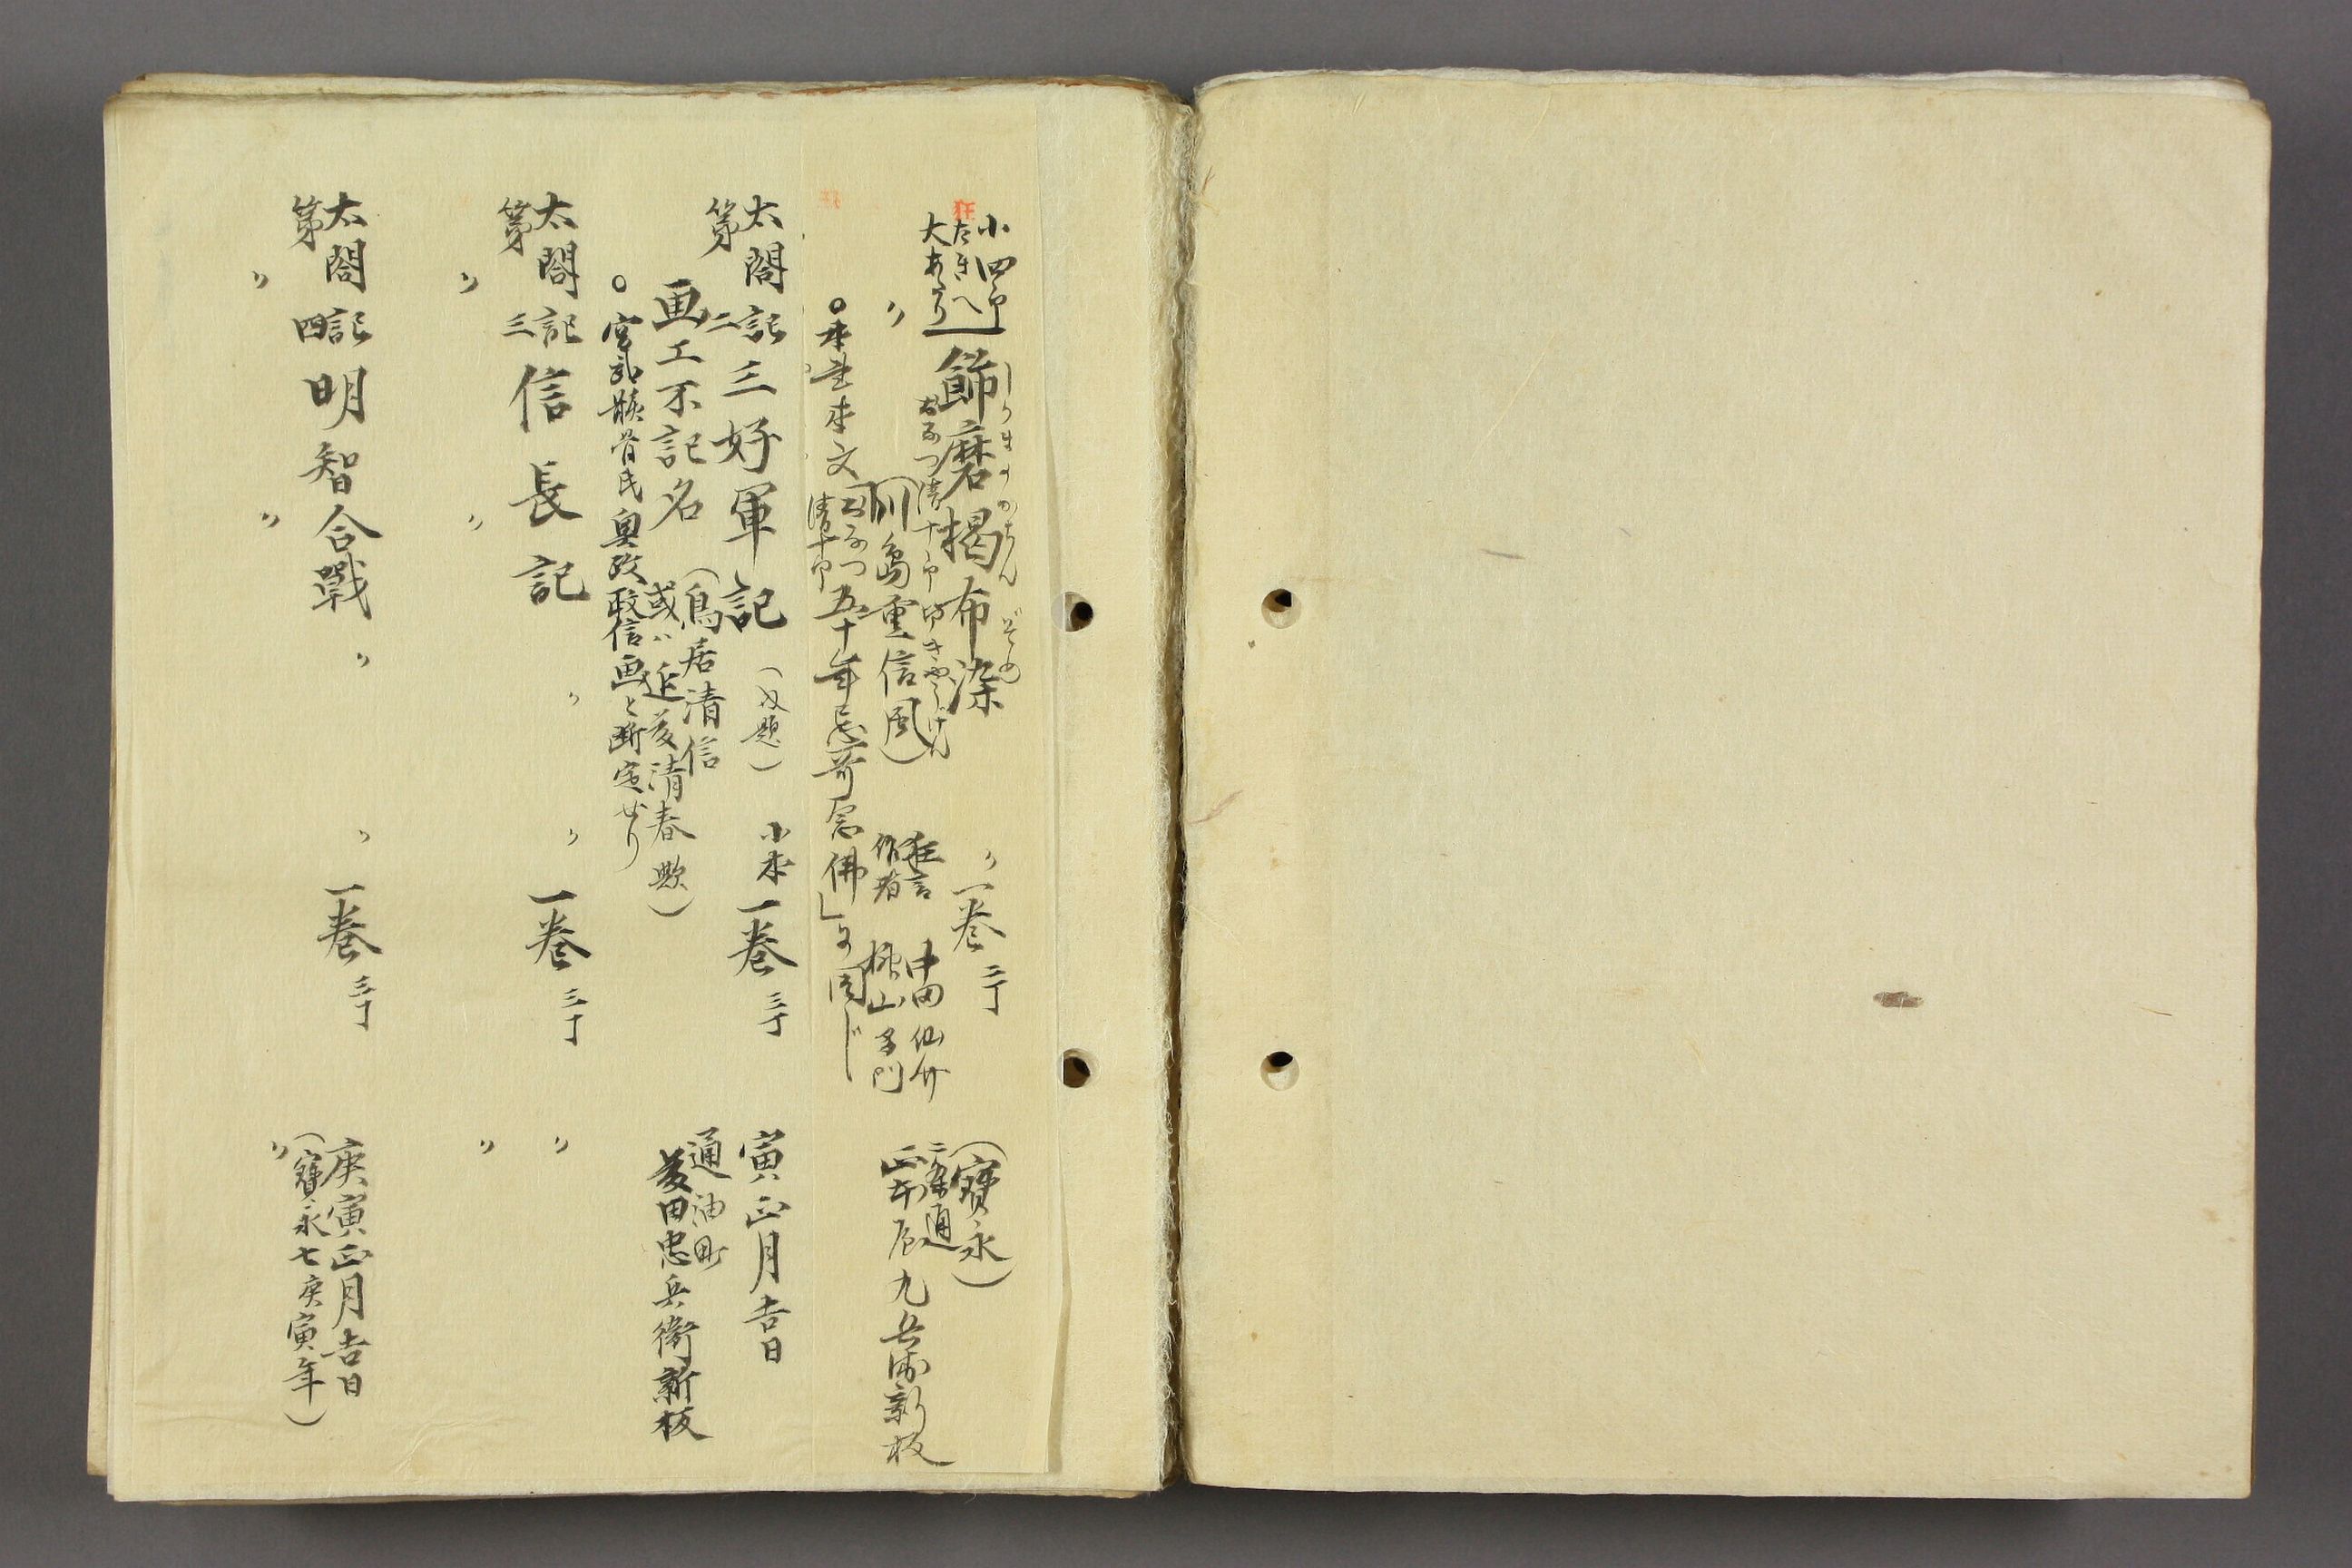 狂
小四郎
たきへ
大あたり
飾磨褐布染
しかまのかちん
ぞめ
〃一巻 二丁
(寶永)
〃
(川島重信風)
狂言
作者
中田仙介
二条通
正本屋九兵衛新板
○本並本文
五十年忌哥念佛」に同じ
太閤記三好軍記
第二
(及題)
小本一巻 三丁
寅正月吉日
画工不記名
(鳥居清信
或ハ近藤清春歟)
通油町
菱田忠兵衛新板
○宮武骸骨氏奥政政信画と断定せり
太閤記信長記 〃 〃 一巻 三丁 〃
第三
〃 〃 〃
太閤記明智合戰 〃 〃 一巻 三丁
第四
庚寅正月吉日
(寶永七庚寅年)
〃 〃 〃